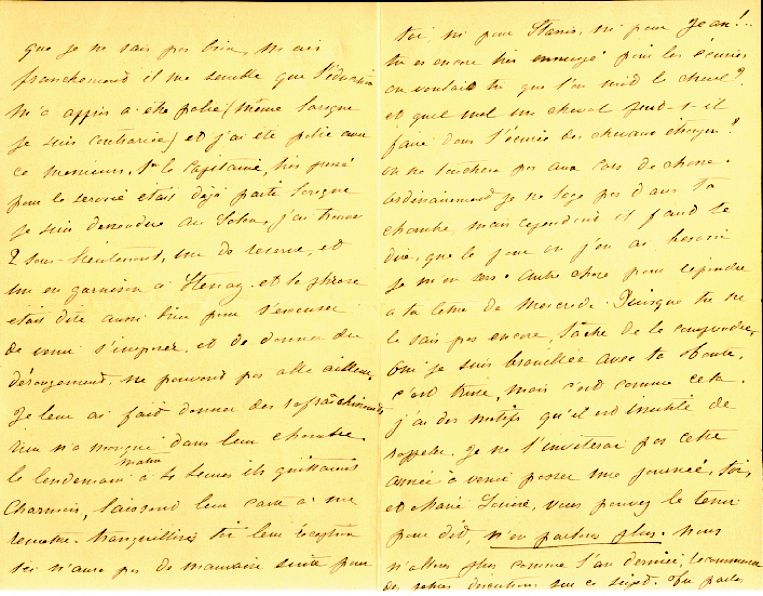 que je ne sais pas bien, mais
franchement il me semble que l'éducation
m'a appris à être polie (même lorsque
je suis contrariée) et j'ai été polie avec
ces messieurs. le Capitaine, très pressé
pour le service était déjà parti lorsque
je suis descendue au Salon, j'ai trouvé
2 sous-lieutenants, un de reserve, et
un en garnison à Stenay. et la phrase
était dite aussi bien pour s'excuser
de venir s'imposer, et de donner du
dérangement, ne pouvant pas aller ailleurs.
Je leur ai fait donner des rafraîchissements
rien n'a manqué dans leur chambre.
le lendemain matin à 4 heures ils quittaient
Charmois, laissant leur carte à me
remettre. tranquillises toi leur réception
ici n'aura pas de mauvaise suite pour
toi, ni pour Stanis, ni pour Jean!..
tu es encore très ennuyé pour les écuries
où voulais tu que l'on mit le cheval?
et quel mal un cheval peut-il
faire dans l'écurie des chevaux étrangers?
on ne touchera pas aux cors de chasse.
ordinairement je ne loge pas dans ta
chambre, mais cependant il faut te
dire, que le jour où j'en ai besoin
je m'en sers. autre chose pour répondre
à ta lettre de Mercredi. Puisque tu ne
le sais pas encore, tâche de le comprendre,
oui je suis brouillée avec ta tante,
c'est triste, mais c'est comme cela.
j'ai des motifs qu'il est inutile de
rappeler. Je ne l'inviterai pas cette
année à venir passer une journée, toi,
et Marie Louise, vous pouvez le tenir
pour dit, n'en parlons plus. nous
n'allons plus comme l'an dernier, recommencer
des petites discussions sur ce sujet. Tu parles